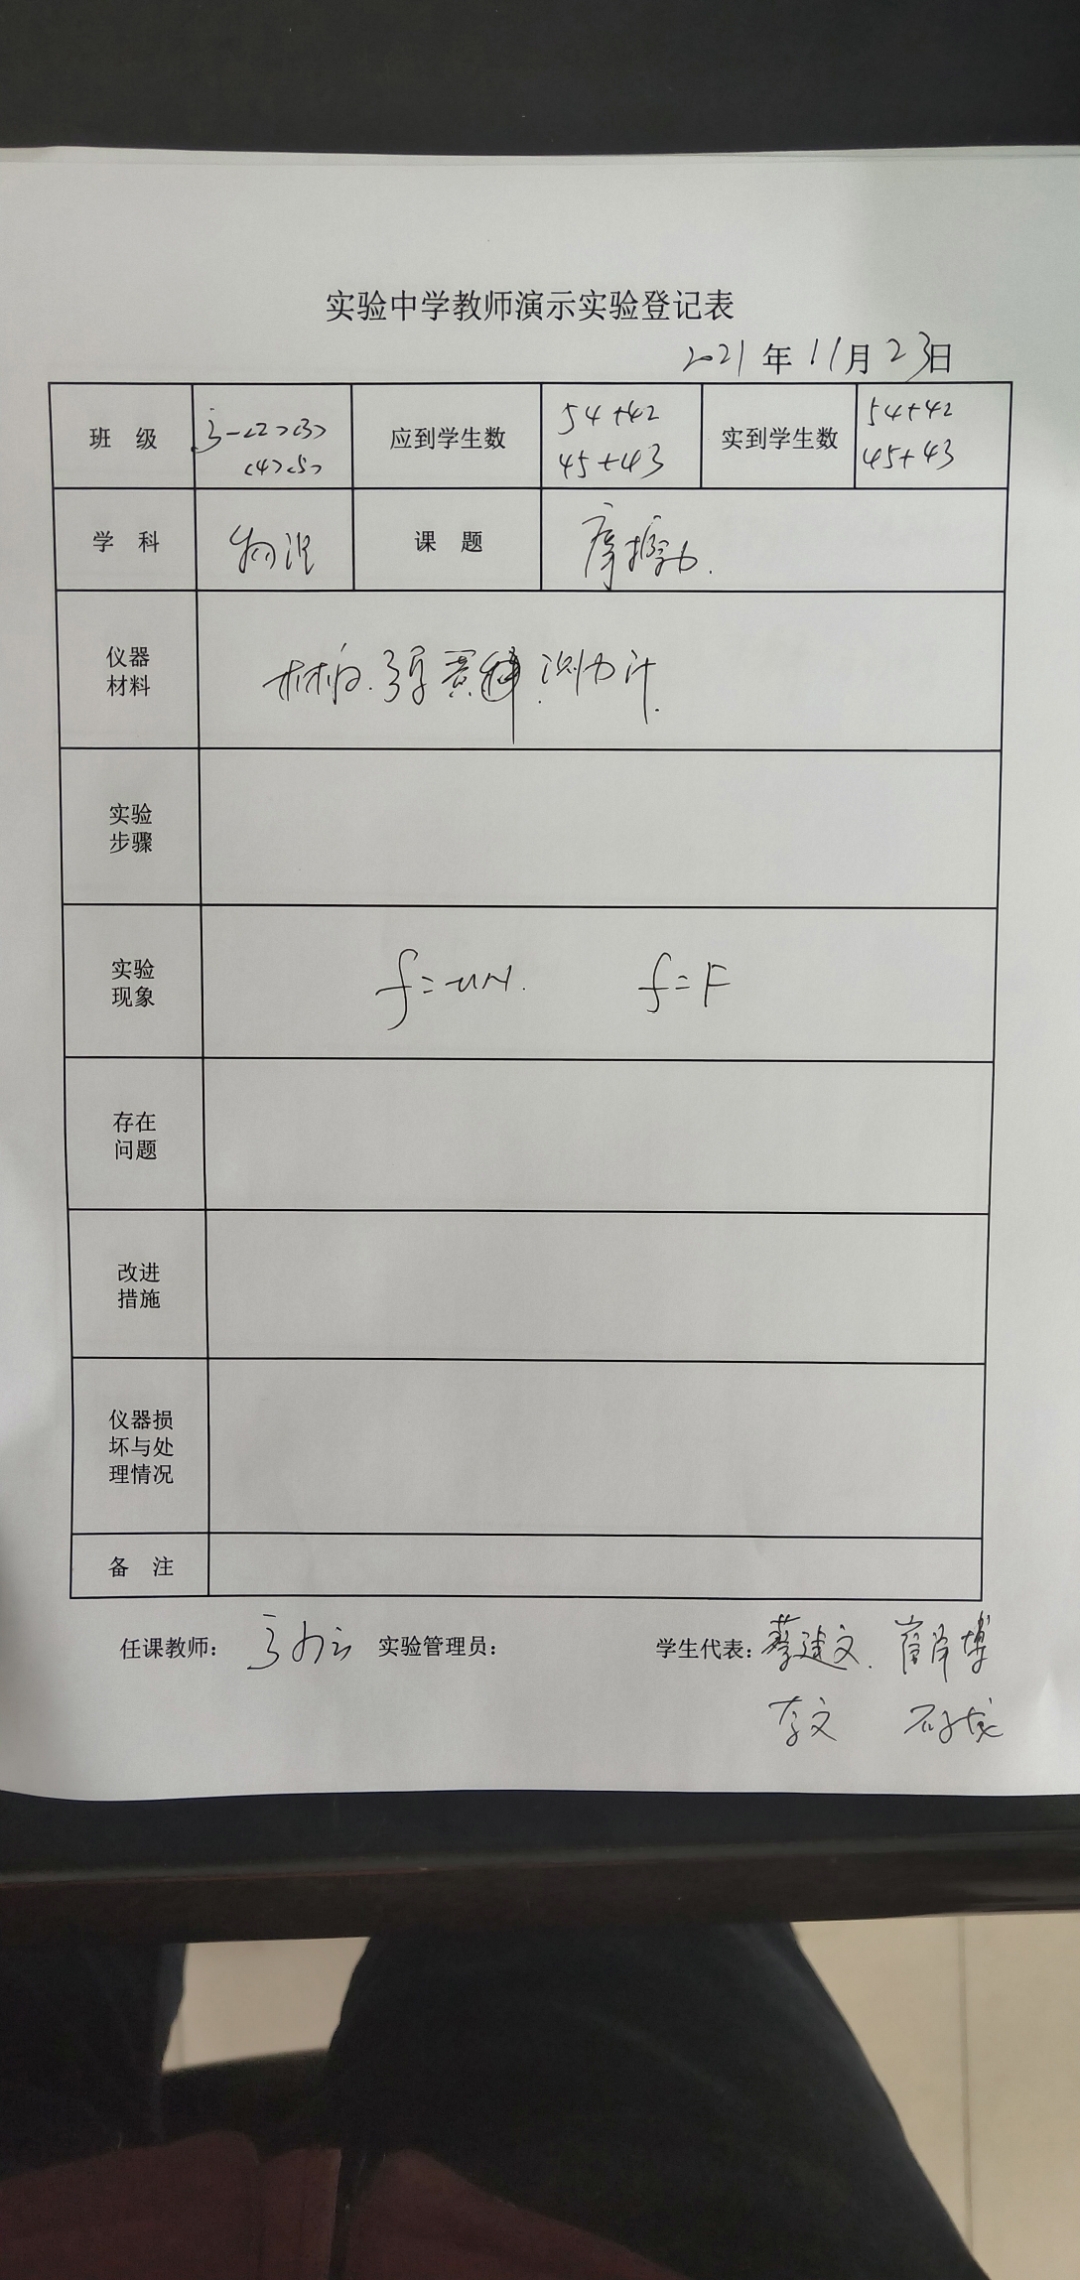 实验中学教师演示实验登记表
2021年11月23日
班 级 高一<2><3> <4><5> 应到学生数 54+42 45+43 实到学生数 54+42 45+43
学 科 物理 课 题 摩擦力.
仪器材料 木板.弹簧 测力计.
实验步骤
实验现象 f=uN. f=F
存在问题
改进措施
仪器损坏与处理情况
备 注
任课教师： 实验管理员： 学生代表：蔡建文.
李文